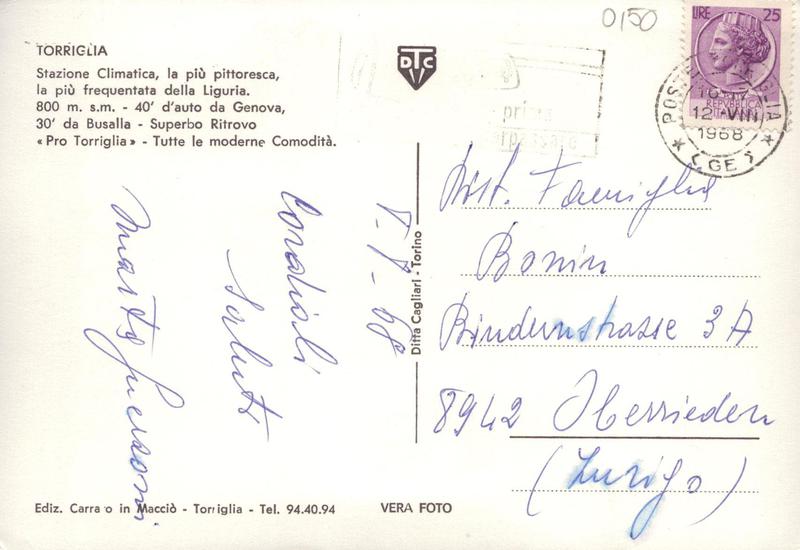 0150
TORRIGLIA
Stazione Climatica, la più pittoresca,
la più frequentata della Liguria.
800 m. s.m. - 40' d'auto da Genova,
30' da Busalla - Superbo Ritrovo
« Pro Torriglia » - Tutte le moderne Comodità.
DTC
LIRE 25
REPVBBLICA
ITALIANA
12 VIII
1968
(GE)
prima
Cordiali
Saluti
Marta
Ditta Cagliari - Torino
Famiglia
Bonin
Bindernstrasse 3A
8942 Oberrieden
(Zurigo)
Ediz. Carra o in Macciò - Torriglia - Tel. 94.40.94
VERA FOTO